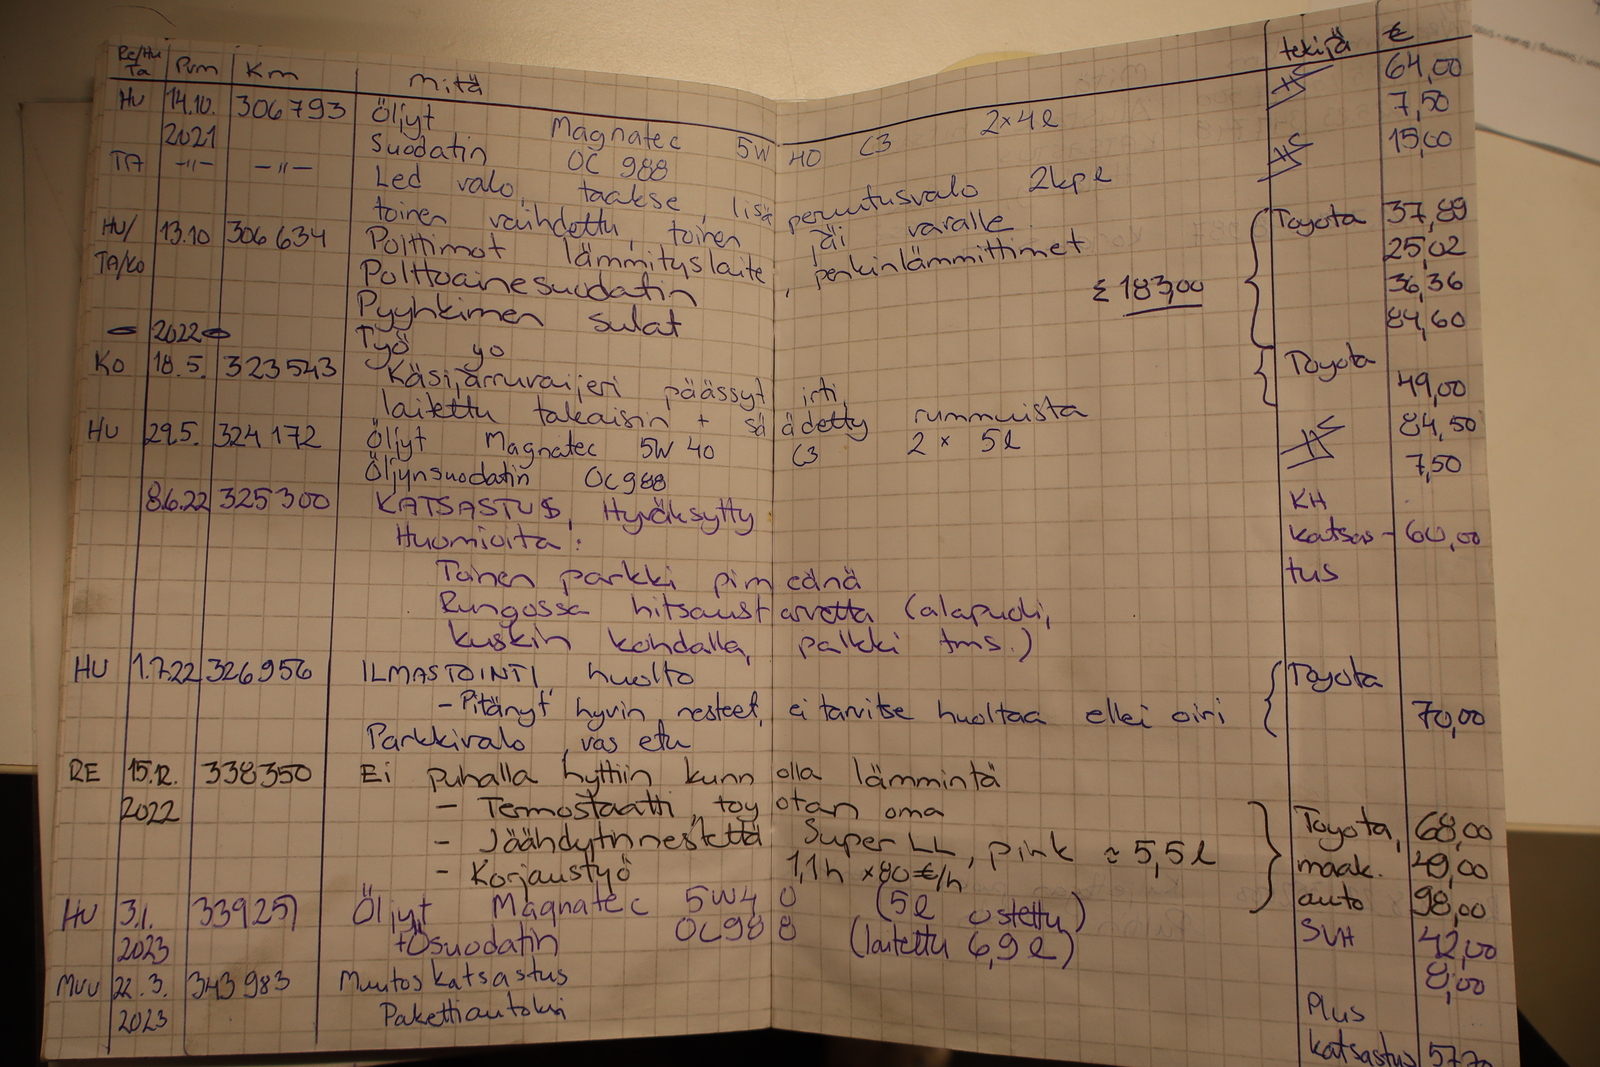 Re/Hu Ta Pvm Km mitä tekijä €
Hu 14.10. 306793 Öljyt Magnatec 5W 40 C3 2x4l 64,00
2021 Suodatin OC 988 7,50
TA -"- -"- Led valo, taakse, lisä peruutusvalo 2kpl 15,00
toinen vaihdettu, toinen jäi varalle
HU/ 13.10 306634 Polttimot lämmityslaite, penkinlämmittimet Toyota 37,89
TA/KO Polttoainesuodatin 25,02
Pyyhkimen sulat Σ 183,00 36,36
2022 Työ yo 84,60
KO 18.5. 323543 Käsijarruvaijeri päässyt irti, Toyota
laitettu takaisin + säädetty rummuista 49,00
HU 29.5. 324172 Öljyt Magnatec 5W 40 C3 2 x 5l 84,50
Öljynsuodatin OC988 7,50
8.6.22 325300 KATSASTUS, Hyväksytty KH
Huomioita: katsas- 60,00
Toinen parkki pimeänä tus
Rungossa hitsaustarvetta (alapuoli,
kuskin kohdalla, palkki tms.)
HU 1.7.22 326956 ILMASTOINTI huolto Toyota
- Pitänyt hyvin nesteet, ei tarvitse huoltaa ellei oiri 70,00
Parkkivalo, vas etu
RE 15.12. 338350 Ei puhalla hyttiin kunnolla lämmintä
2022 - Termostaatti, toyotan oma Toyota, 68,00
- Jäähdytinnestettä Super LL, pink ≈ 5,5l maak. 49,00
- Korjaustyö 1,1h x80€/h auto 98,00
HU 3.1. 339251 Öljyt Magnatec 5W40 (5l ostettu) SVH 42,00
2023 +Ösuodatin OC988 (laitettu 6,9l) 8,00
MUU 22.3. 343983 Muutoskatsastus
2023 Pakettiautoksi Plus
katsastus 57,70